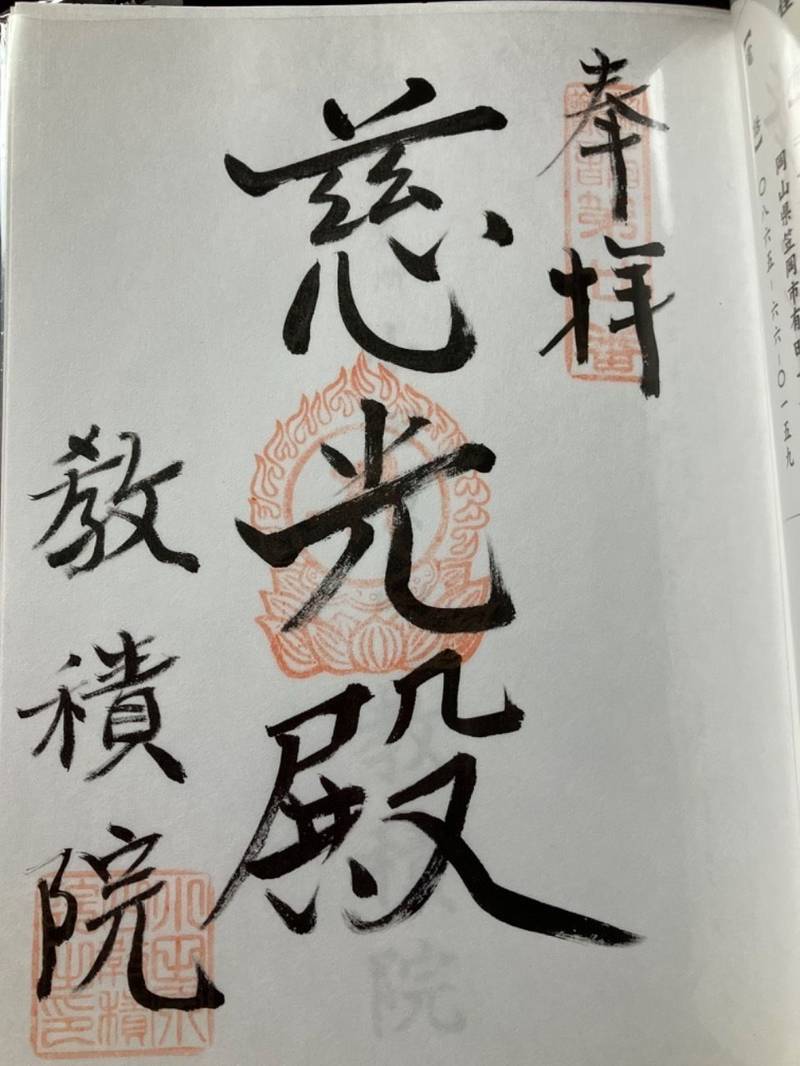 奉拝
慈光殿
教積院
岡山県笠岡市有田
〇八六五-六六-〇一五九
教積院